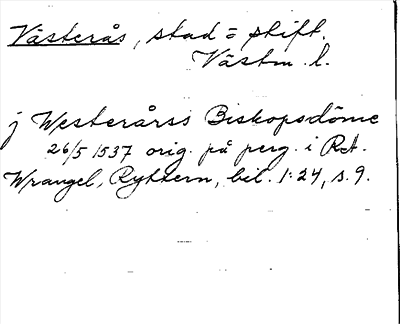 Västerås, stad = stift.
Västm. l.
j Westerårss Biskopsdöme
26/5 1537 orig. på perg. i RA.
Wrangel, Ryttern, bil. 1:24, s. 9.